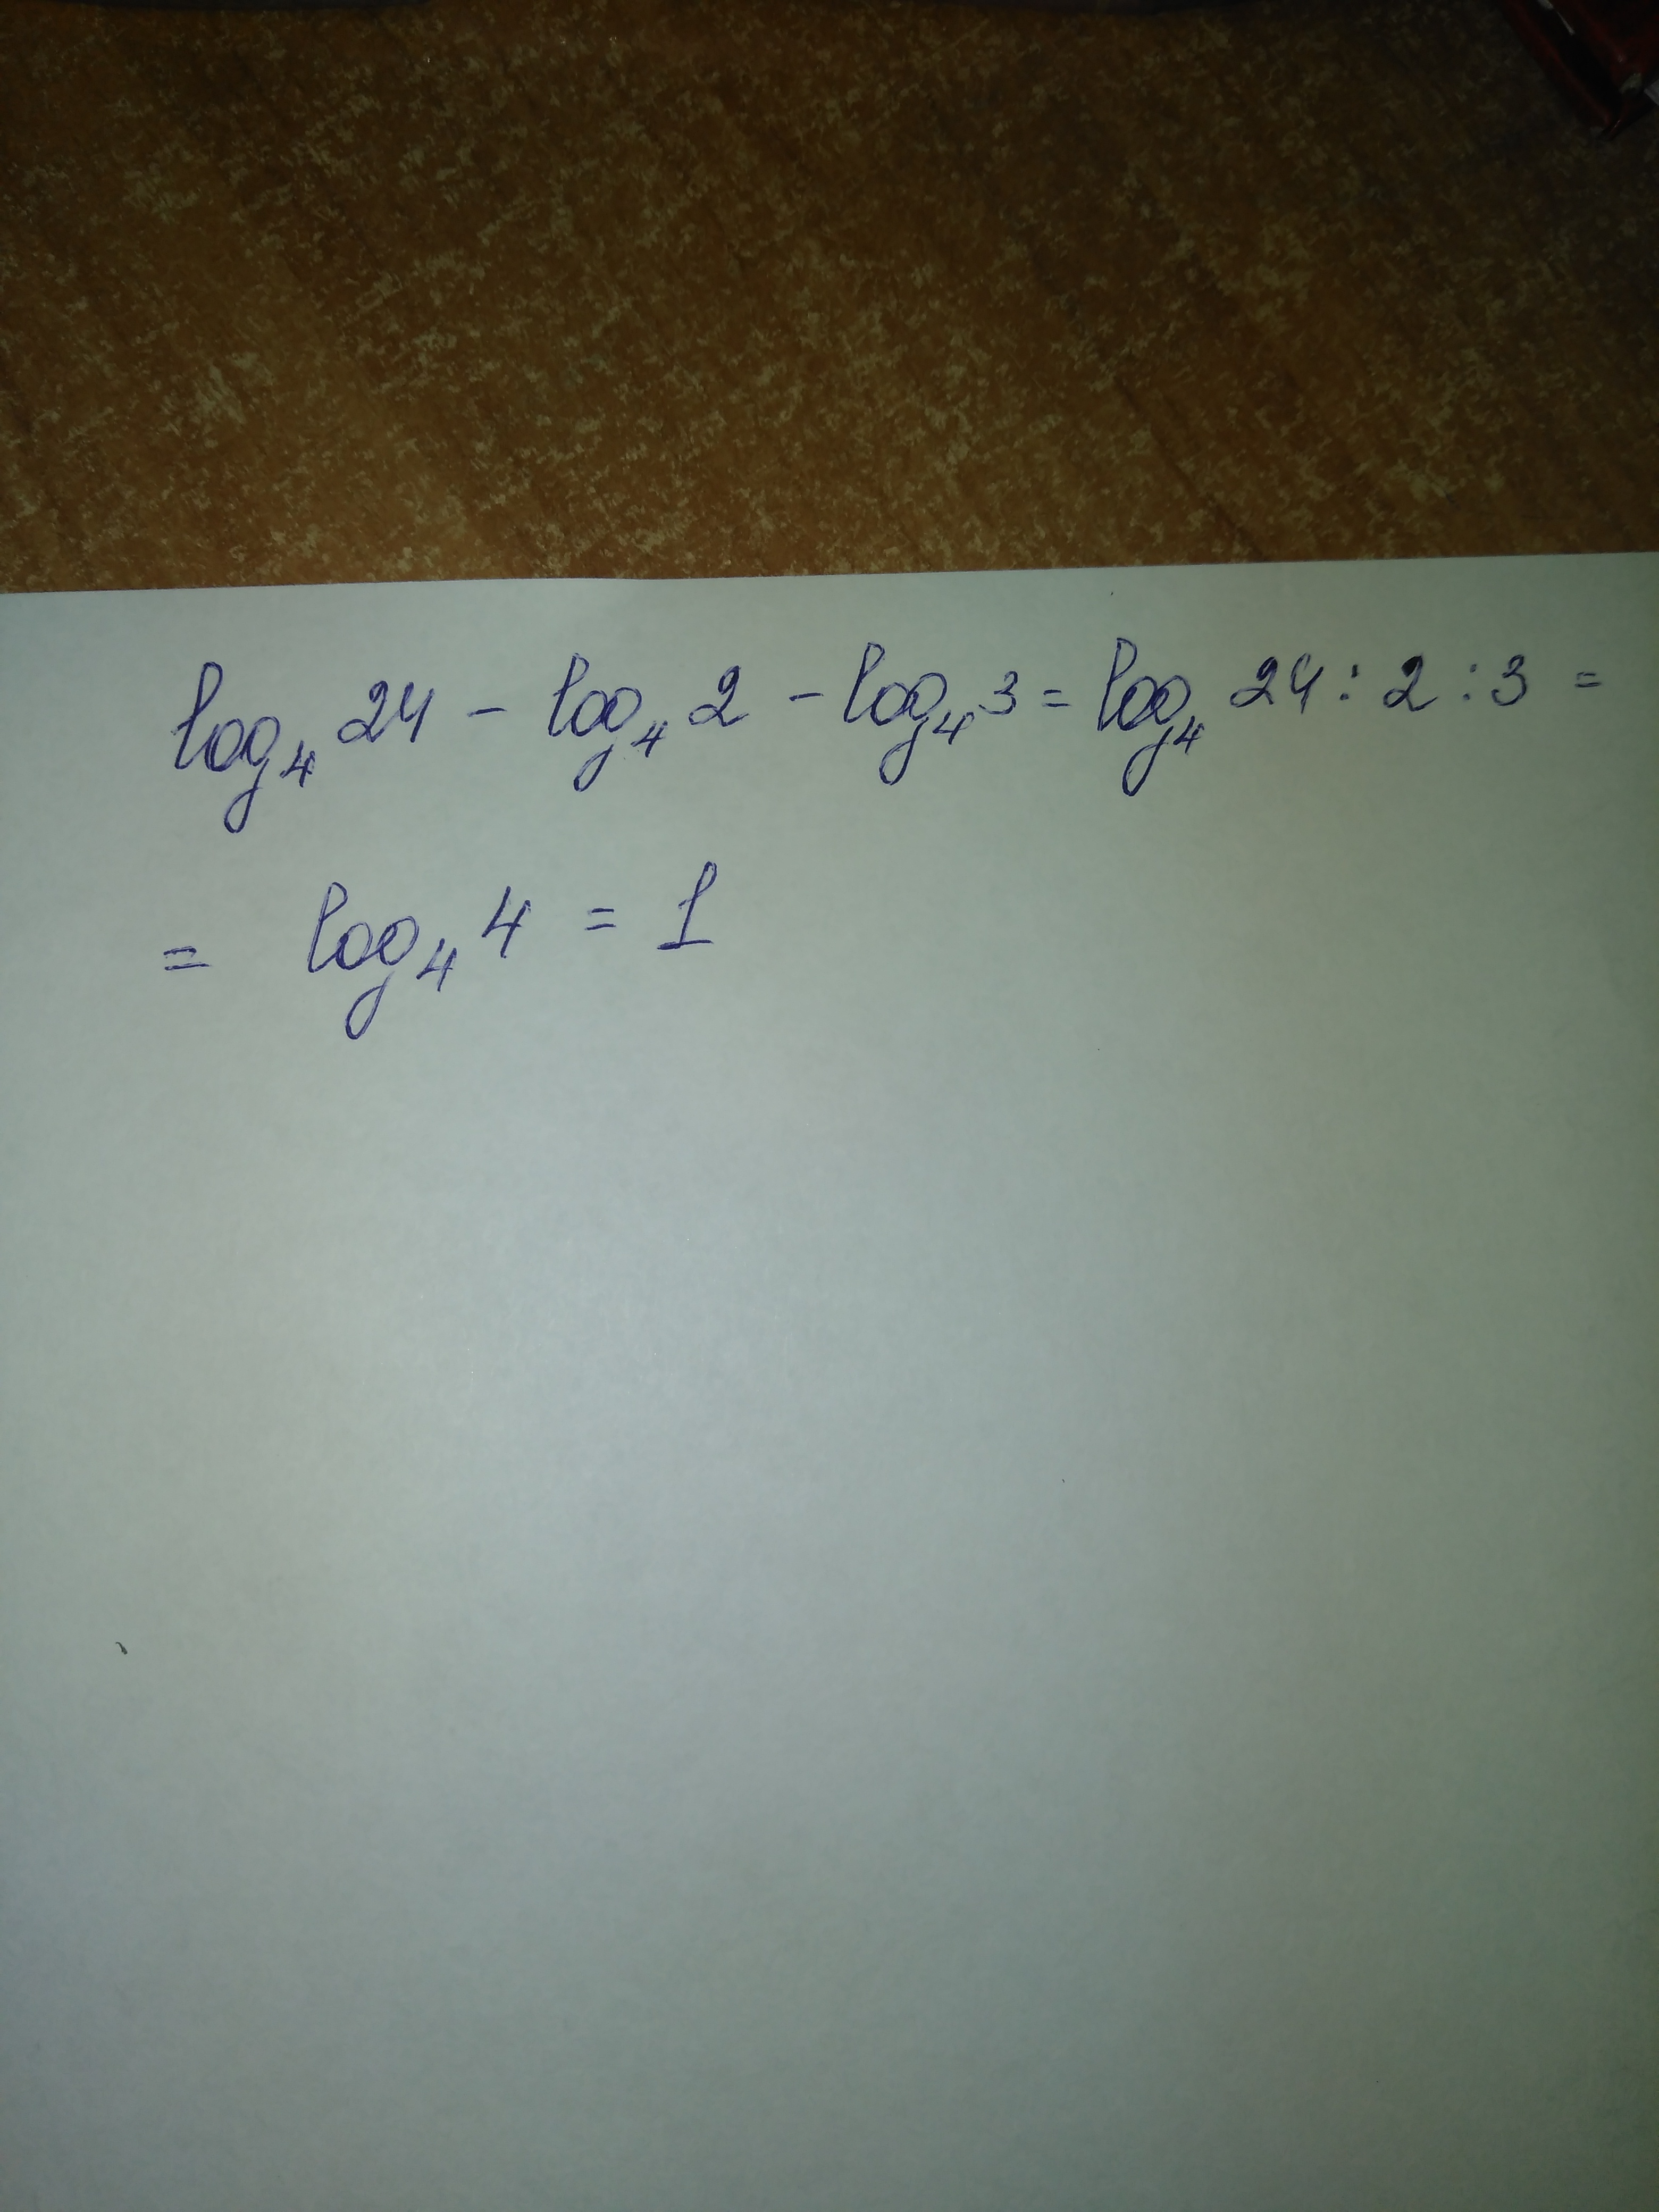 log₄ 24 - log₄ 2 - log₄ 3 = log₄ 24 : 2 : 3 =
= log₄ 4 = 1